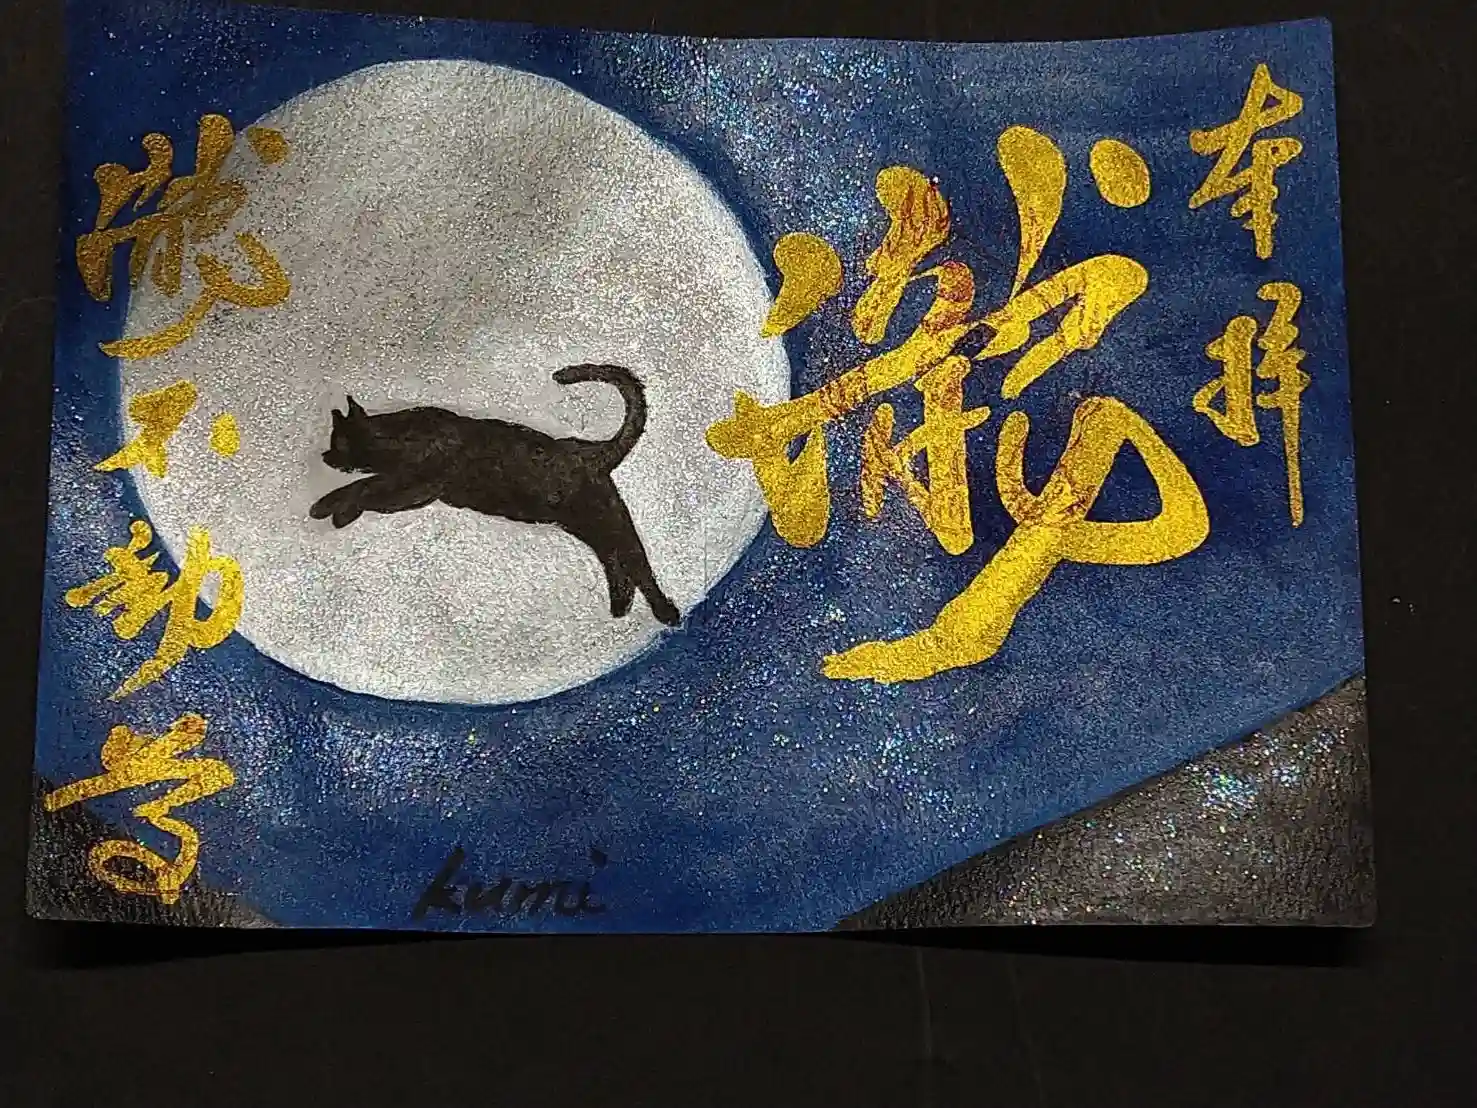 奉拝
瀧
瀧不動尊
kumi